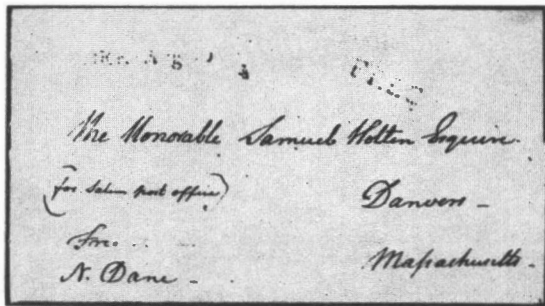 FREE
The Honorable Samuel Holten Esquire.
(for Salem post office)
Danvers -
Free
N. Dane -
Massachusetts -